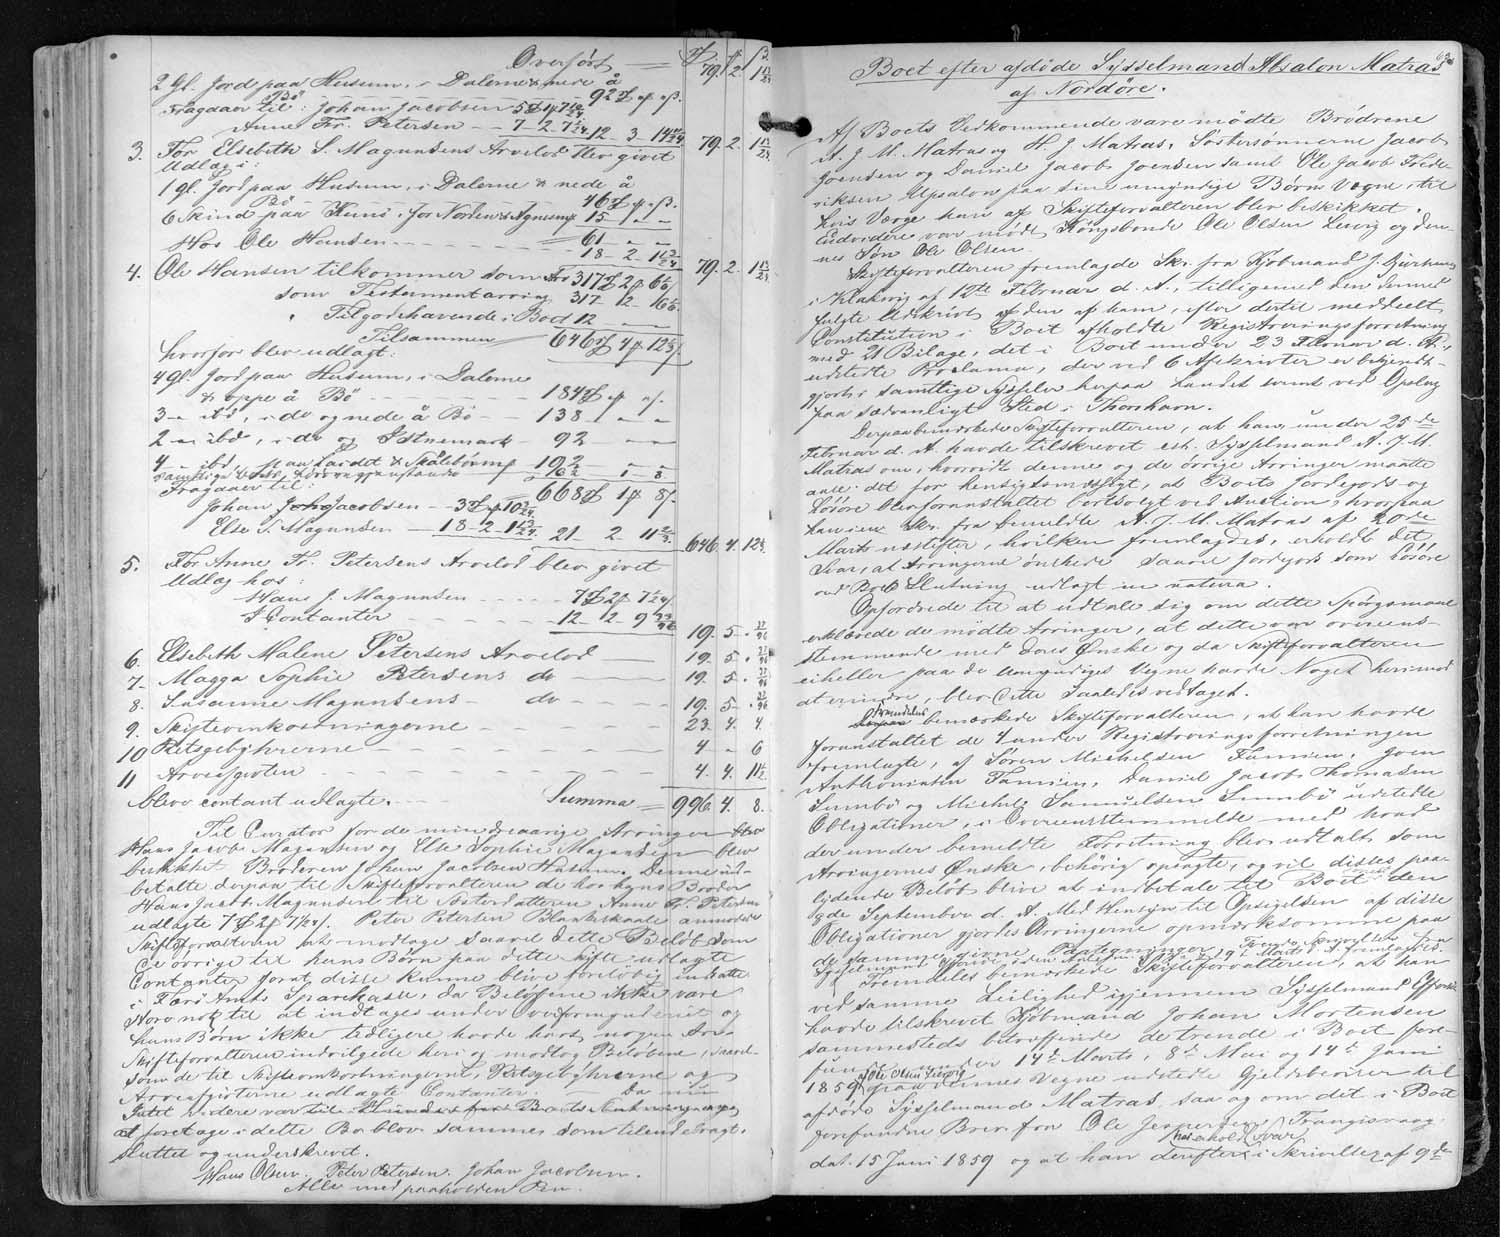 Overført — 79. 2. 1 13/24
2 Gl. Jord paa Husum, i Dalerne & nede å
Bø - - - 92
Fragaaer til: Johan Jacobsen 5
Anne Fr. Petersen - - 7 - 2 - 7 12 - 3 - 14
3. For Elsebeth S. Magunsens Arvelod blev givet 79. 2. 1 13/24
Udlæg i:
1 gl. Jord paa Husum, i Dalerne & nede å
Bø - - - 46
6 Skind paa Kunö, for Norden 15 - -
61 - -
Hos Ole Hansen - - - 18 - 2 - 1
4. Ole Hansen tilkommer som Arv 317 2 6 79. 2. 1 13/24
som Testamentarving 317 - 12 - 16
" Tilgodehavende i Boet 12 - -
Tilsammen 646 4 12
hvorfor blev udlagt:
4 Gl. Jord paa Husum, i Dalerne
& oppe å Bø - - - 184
3 - ibd, i do og nede å Bø - - 138 - -
2 - ibd, i do og - 92 - -
4 - ibd 192 - -
668 1 8
Fragaaer til:
Johan Jacobsen - 3
Else S. Magunsen - 18 - 2 - 1 21 - 2 11 646. 4. 12
5. For Anne Fr. Petersens Arvelod blev givet
Udlæg hos:
Hans J. Magunsen - - - 7 2 7 1/24
I Contanter - - - 12 - 2 - 9 19. 5 -
6. Elsebeth Malene Petersens Arvelod — 19. 5.
7. Magga Sophie Petersens do — 19. 5.
8. Susanne Magunsens - do - - - 19. 5.
9. Skifteomkostningerne - - - 23. 4. 4.
10 Retsgebyhrerne - - - 4 - " 6
11 Arveafgivten - - - 4. 4. 11
blev contant udlagte. - - Summa = 996. 4. 8.
Til Curator for de mindreaarige Arvinger
Hans Jacob Magunsen og Else Sophie Magunsen blev
beskikket Broderen Johan Jacobsen Husum. Denne ud-
betalte derpaa til Skifteforvalteren de hos hans Broder
Hans Jacob Magunsen til Søsterdatteren Anne Fr. Petersen
udlagte 7 2 7 1/24. Peter Petersen Blankskaale anmodede
Skifteforvalteren at modtage saavel dette Beløb som
de øvrige til hans Børn paa dette Skifte udlagte
Contanter for at disse kunne blive foreløbig indsatte
i Færø Amts Sparekasse, da Beløbene ikke vare
store nok til at indtages under Overformynderiet og
hans Børn ikke tidligere havde havt nogen Arv.
Skifteforvalteren indvilgede heri og modtog Beløbene, saavel-
som de til Skifteomkostningerne, Retsgebyhrerne og
Arveafgivterne udlagte Contanter. — Da nu
Intet videre var
at foretage i dette Bo blev sammes som tilendebragt
sluttet og underskrevet.
Hans Olsen. Peter Petersen. Johan Jacobsen.
Alle med paaholden Pen.
Boet efter afdøde Sysselmand Absalon Matras
af Nordøre.
Af Boets Vedkommende vare mødte Brødrene
A. J. M. Matras og H. J. Matras, Søstersønnerne Jacob
Joensen og Daniel Jacob Joensen samt Ole Jacob Frede-
riksen Upsalon paa sine umyndige Børns Vegne, til
hvis Værge han af Skifteforvalteren blev beskikket.
Endvidere var mødt Kongsbonde Ole Olsen Lervig og den-
nes Søn Ole Olsen.
Skifteforvalteren fremlagde Skr. fra Kjøbmand J.
i Klaksvig af 12te Februar d. A., tilligemed den dermed
fulgte Udskrivt af den af ham, efter dertil meddeelt
Constitution i Boet afholdte Registreringsforretning
med 21 Bilage, det i Boet under 23 Februar d. A.
udstedte Proclama, der ved 6 Afskrivter er bekjendt-
gjort i samtlige Sysseler herpaa Landet samt ved Opslag
paa sædvanligt Sted i Thorshavn.
Derpaa bemærkede Skifteforvalteren, at han under 25de
Februar d. A. havde tilskrevet cst. Sysselmand A. J. M.
Matras om, hvorvidt denne og de øvrige Arvinger maatte
ansee det for hensigtsmæssigt, at Boets Jordegods og
Løsøre blev foranstaltet bortsolgt ved Auction, hvorpaa
han i en Skr. fra bemeldte A. J. M. Matras af 20de
Marts næstefter, hvilken fremlagdes, erholdt det
Svar, at Arvingerne ønskede saavel Jordegods som Løsøre
ved Boets Slutning udlagt in natura.
Opfordrede til at udtale sig om dette Spørgsmaal
erklærede de mødte Arvinger, at dette var overeens-
stemmende med deres Ønske og da Skifteforvalteren
eiheller paa de Umyndiges Vegne havde Noget herimod
at erindre, blev dette saaledes vedtaget.
Fremdeles bemærkede Skifteforvalteren, at han havde
foranstaltet de 4 under Registreringsforretningen
fremlagte, af Søren Michelsen Famien, Joen
Anthoniasen Famien, Daniel Jacob Thomasen
Sumbø og Michel Samuelsen Sumbø udstedte
Obligationer, i Overeensstemmelse med hvad
der under bemeldte Forretning blev udtalt som
Arvingernes Ønske, behørig opsagte, og vil disses paa-
lydende Beløb blive at indbetale til Boet den
9de September d. A. Med Hensyn til Opsigelsen af disse
Obligationer gjordes Arvingerne opmærksomme paa
de samme givne Paategninger
Fremdeles bemærkede Skifteforvalteren, at han
ved samme Leilighed igjennem Sysselmand
havde tilskrevet Kjøbmand Johan Mortensen
sammesteds betræffende de trende i Boet fore-
fundne under 14de Marts, 8de Mai og 14de Juni
1859 af Ole Olsen Lervig paa dennes Vegne udstedte Gjeldsbeviser til
afdøde Sysselmand Matras, saa og om det i Boet
forefundne Brev fra Ole Jespersen, Frangisvaag
dat. 15 Juni 1859 og at han derefter har erholdt Svar i Skrivelse af 9de